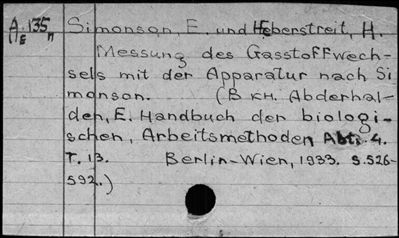 A 135
II E n
Simonson, E. und Heberstreit, H.
Messung des Gasstoffwech-
sels mit der Apparatur nach Si
monson. (В кн. Abderhal-
den, E. Handbuch der biologi-
schen, Arbeitsmethoden Abt. 4.
T. 13. Berlin-Wien, 1933. S. 526-
592.)